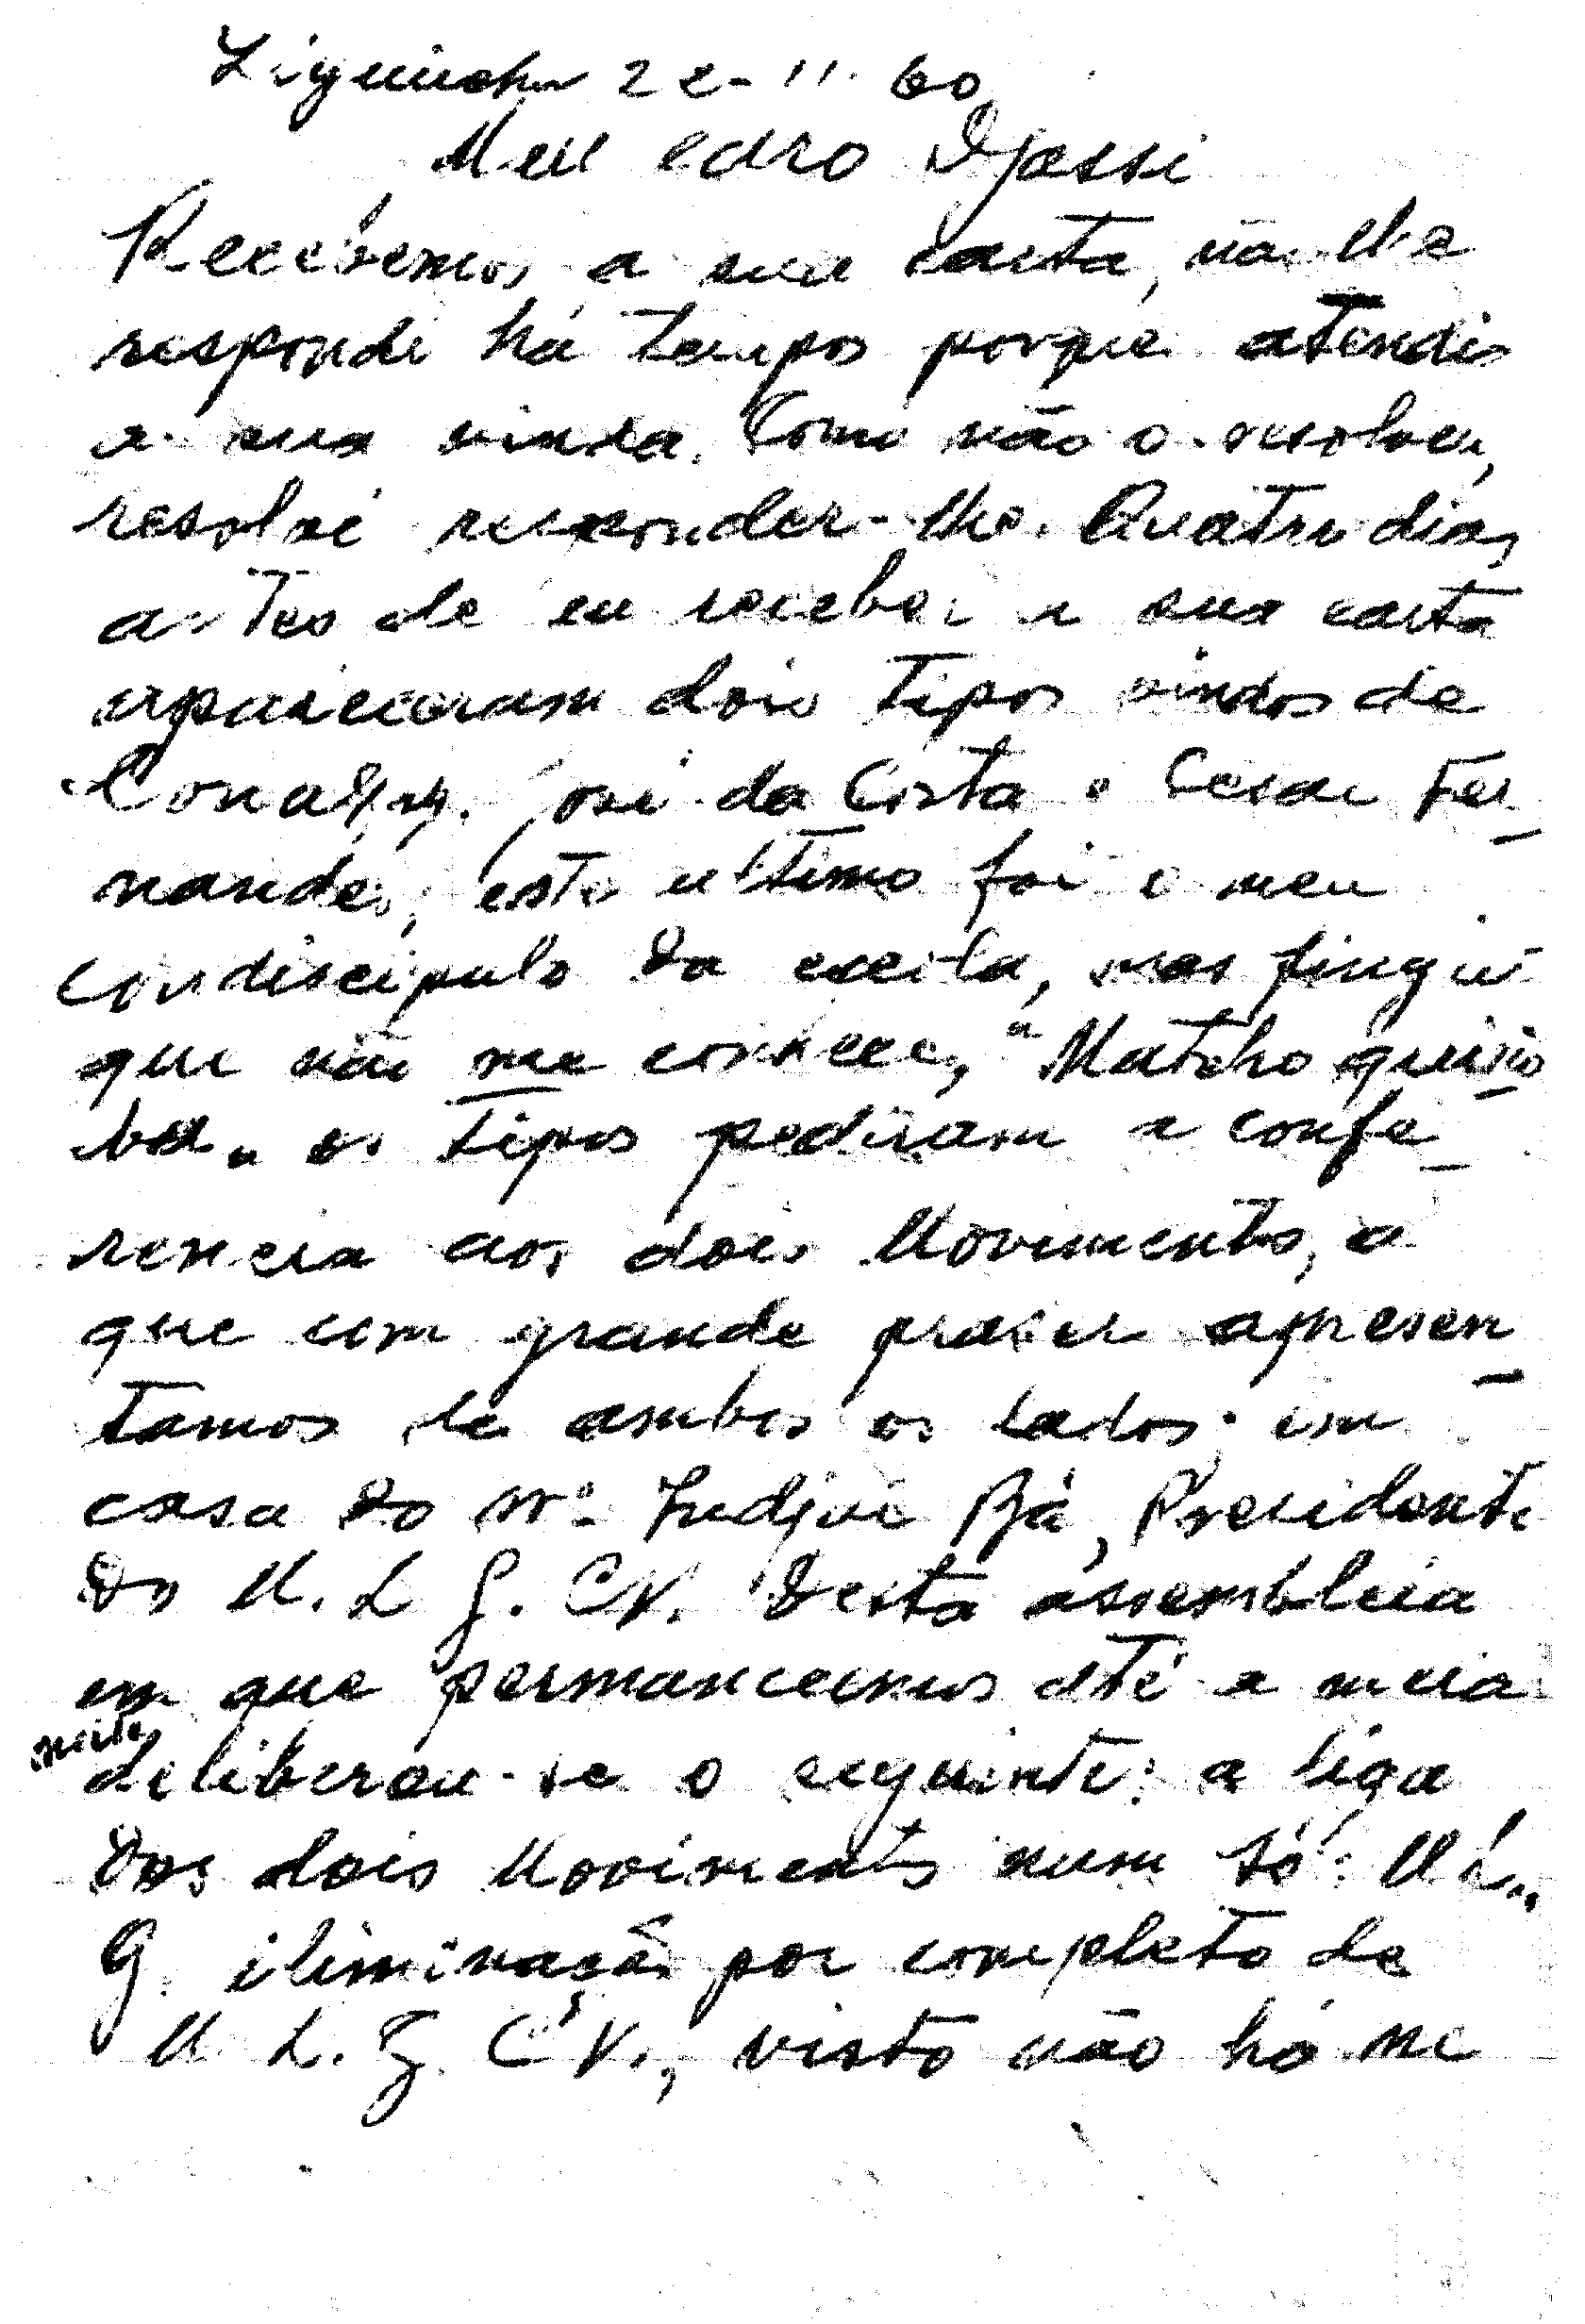 Ziguinchor 22-11-60
Meu caro Djassi
Recebemos a sua carta, não lhe
respondi há tempos porque atendia
a sua vinda. Como não o resolveu,
resolvi responder-lhe. Quatro dias
antes de eu receber a sua carta
apareceram dois tipos vindos de
Conakry. José da Costa e Cesar Fer_
nandes, este ultimo foi o meu
condiscipulo da escola, mas fingiu
que não me conhecer,
os tipos pediram a confe_
rencia aos dois Movimentos, a
que com grande prazer apresen_
tamos de ambos os lados; em
casa do Bá, Presidente
do M. L. G. C.V. Desta assembleia
em que permanecemos até a meia
noite
deliberou-se o seguinte: a liga
dos dois Movimentos num só: M.L.
G. iliminação por completo de
M. L. G. C.V., visto não há ne